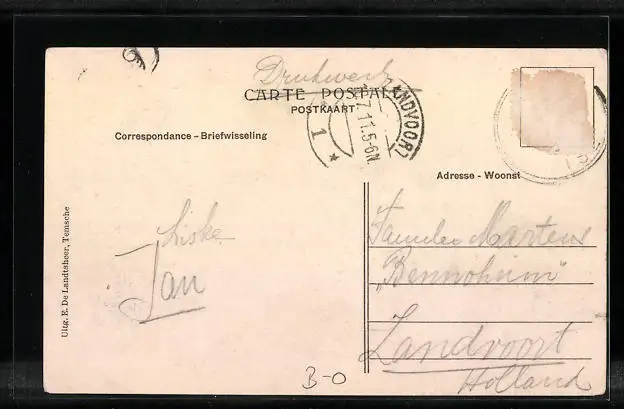 Drukwerk
CARTE POSTALE
POSTKAART
ZANDVOORT
7.11.5-6N.
1 *
Correspondance - Briefwisseling
Adresse - Woonst
Familie Martens
„Bennoheim"
Zandvoort
Holland
Liske
Jan
Uitg. E. De Landtsheer, Temsche
B-O